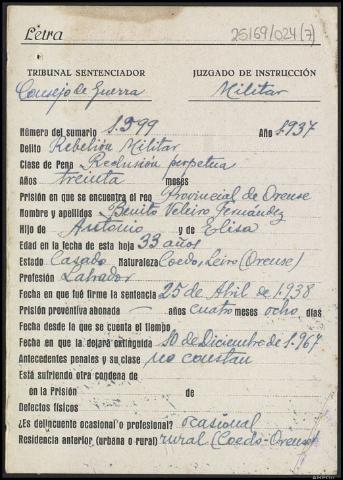 Letra
25169/024(7)
TRIBUNAL SENTENCIADOR JUZGADO DE INSTRUCCIÓN
Consejo de Guerra Militar
Número del sumario 1.599 Año 1.937
Delito Rebelión Militar
Clase de Pena Reclusión perpetua
Años treinta meses
Prisión en que se encuentra el reo Provincial de Orense
Nombre y apellidos Benito Veleiro Fernández
Hijo de Antonio y de Elisa
Edad en la fecha de esta hoja 33 años
Estado Casado Naturaleza Coedo, Leiro (Orense)
Profesión Labrador
Fecha en que fué firme la sentencia 25 de Abril de 1.938
Prisión preventiva abonada años cuatro meses ocho días
Fecha desde la que se cuenta el tiempo
Fecha en que la dejará extinguida 10 de Diciembre de 1.967
Antecedentes penales y su clase no constan
Está sufriendo otra condena de
en la Prisión de
Defectos físicos
¿Es delincuente ocasional o profesional? ocasional
Residencia anterior (urbana o rural) rural (Coedo-Orense)